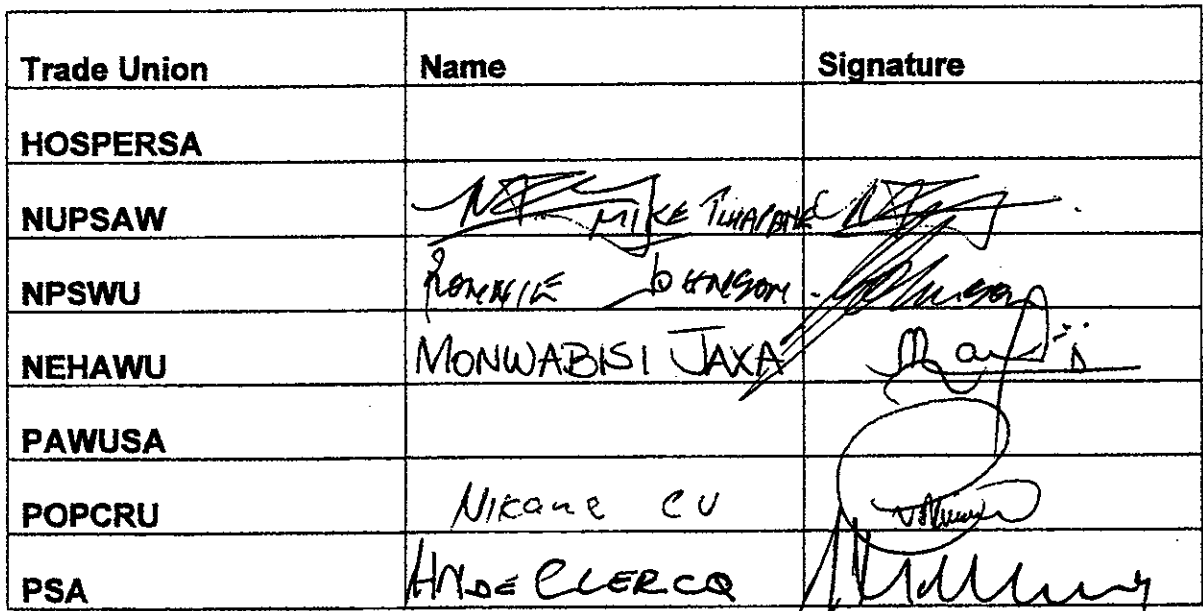 Trade Union Name Signature
HOSPERSA
NUPSAW MIKE
NPSWU RONNIE JOHNSON
NEHAWU MONWABISI JAXA
PAWUSA
POPCRU Nikane CV
PSA AN DE CLERCQ